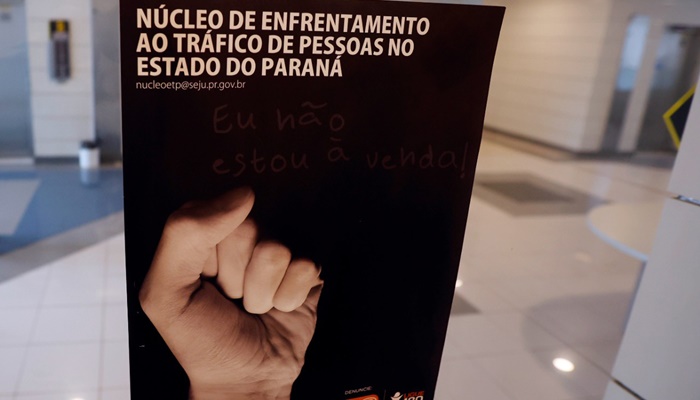 NÚCLEO DE ENFRENTAMENTO
AO TRÁFICO DE PESSOAS NO
ESTADO DO PARANÁ
nucleoetp@seju.pr.gov.br
Eu não
estou à venda!
DENUNCIE